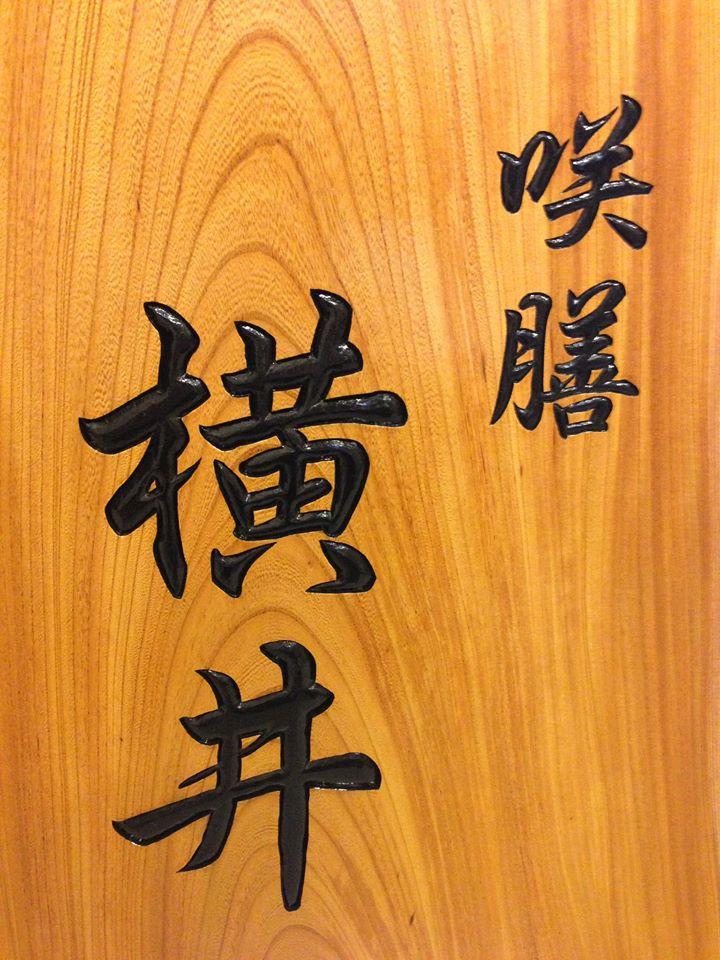 咲膳
横井